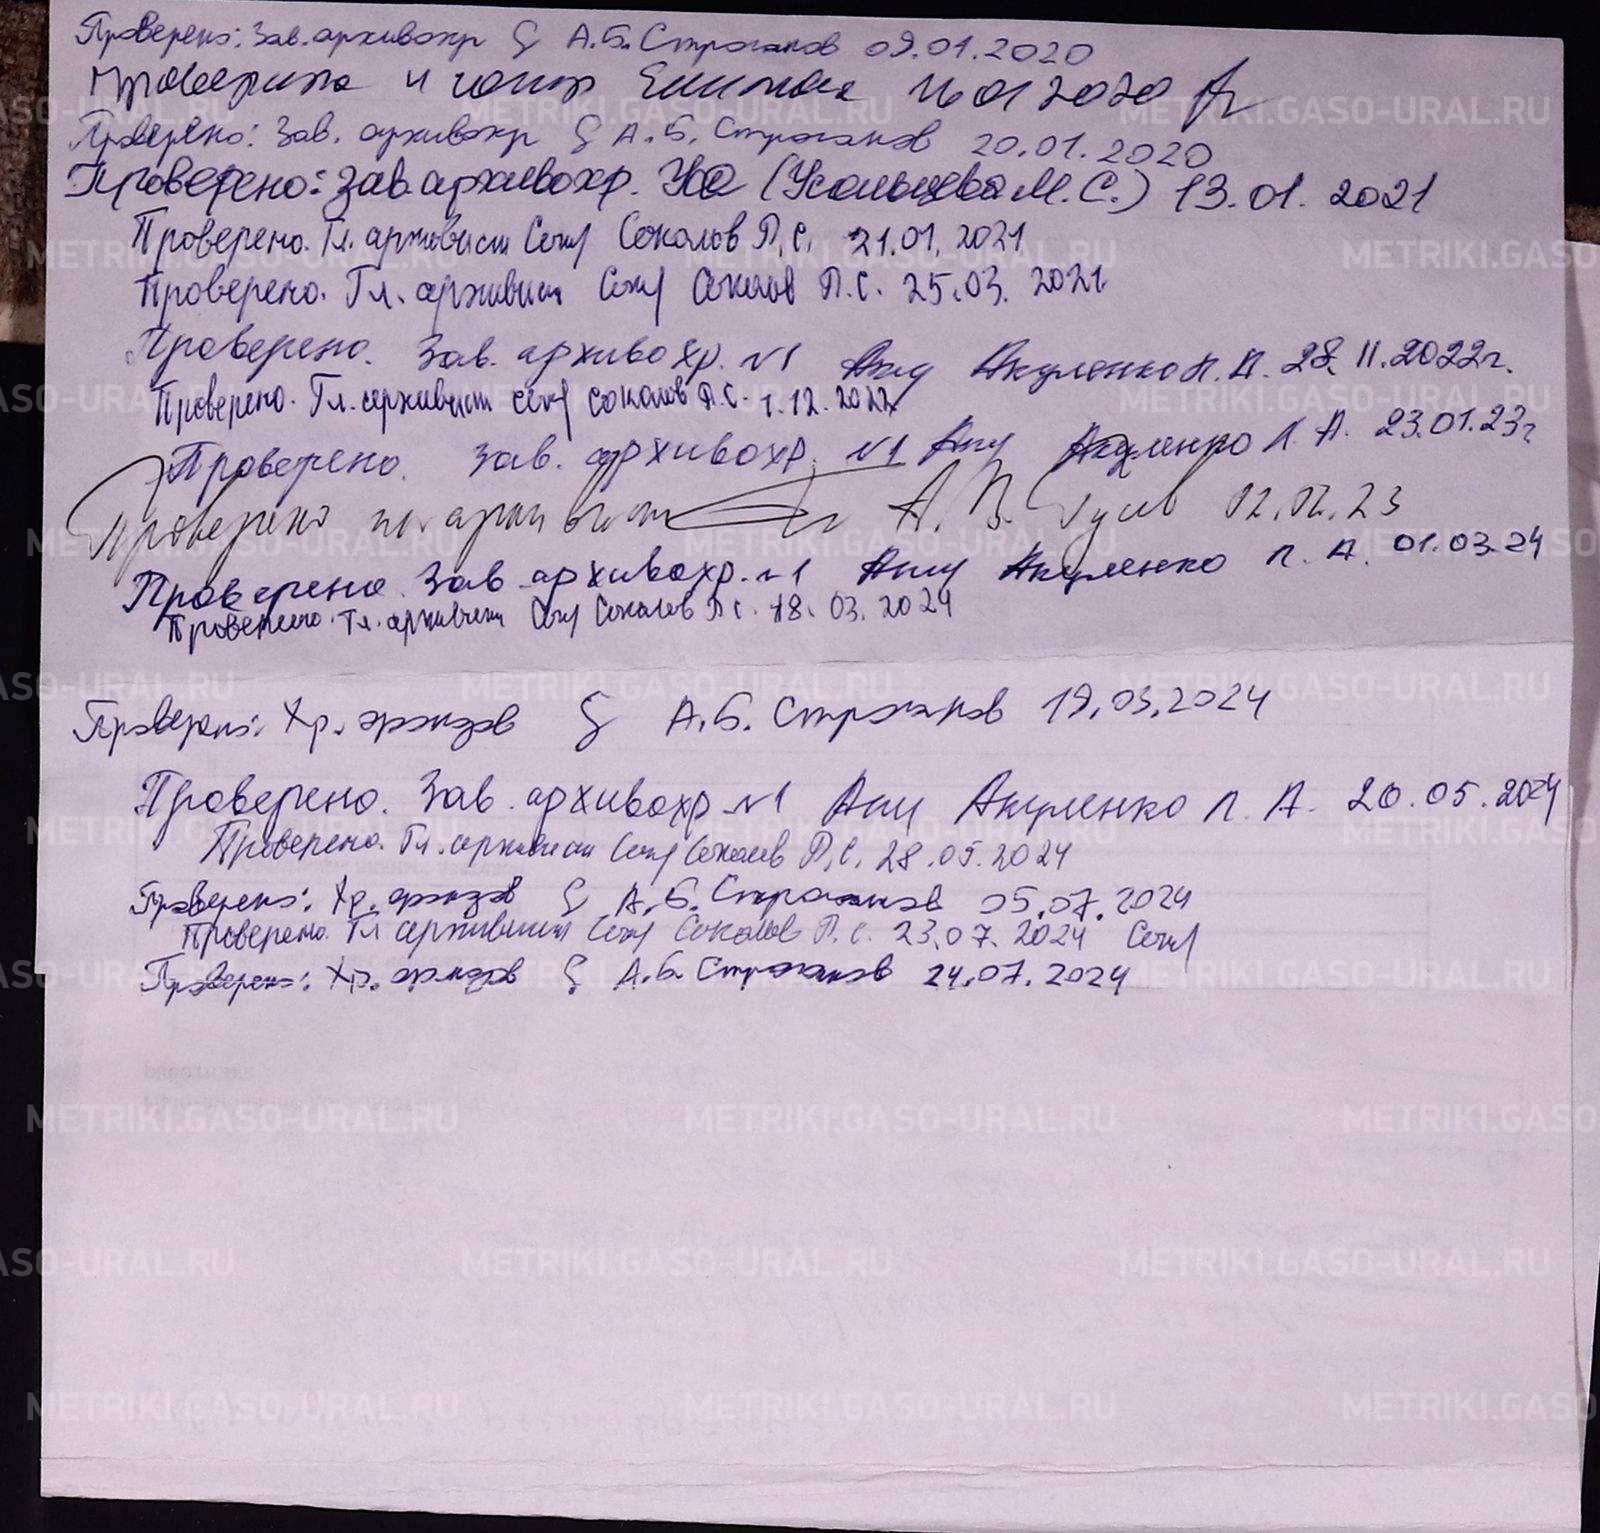 Проверено: Зав. архивохр А.Б. Строганов 09.01.2020
Проверила 16 01 2020
Проверено: Зав. архивохр А.Б. Строганов 20.01.2020
Проверено: Зав. архивохр. (Усольцева М.С.) 13.01.2021
Проверено. Гл. архивист Соколов П.С. 21.01.2021
Проверено. Гл. архивист Соколов П.С. 25.03.2021
Проверено. Зав. архивохр. №1 Акуленко Л.А. 28.11.2022г.
Проверено. Гл. архивист Соколов П.С. 1.12.2022
Проверено. Зав. архивохр. №1 Акуленко Л.А. 23.01.23г
Проверено гл. архивист А.В. Гусев 02.02.23
Проверено. Зав. архивохр. №1 Акуленко Л.А. 01.03.24
Проверено. Гл. архивист Соколов П.С. 18.03.2024
Проверено: Хр. фондов А.Б. Строганов 19.03.2024
Проверено. Зав. архивохр. №1 Акуленко Л.А. 20.05.2024
Проверено. Гл. архивист Соколов П.С. 28.05.2024
Проверено: Хр. фондов А.Б. Строганов 05.07.2024
Проверено. Гл архивист Соколов П.С. 23.07.2024
Проверено: Хр. фондов А.Б. Строганов 24.07.2024
METRIKI.GASO-URAL.RU